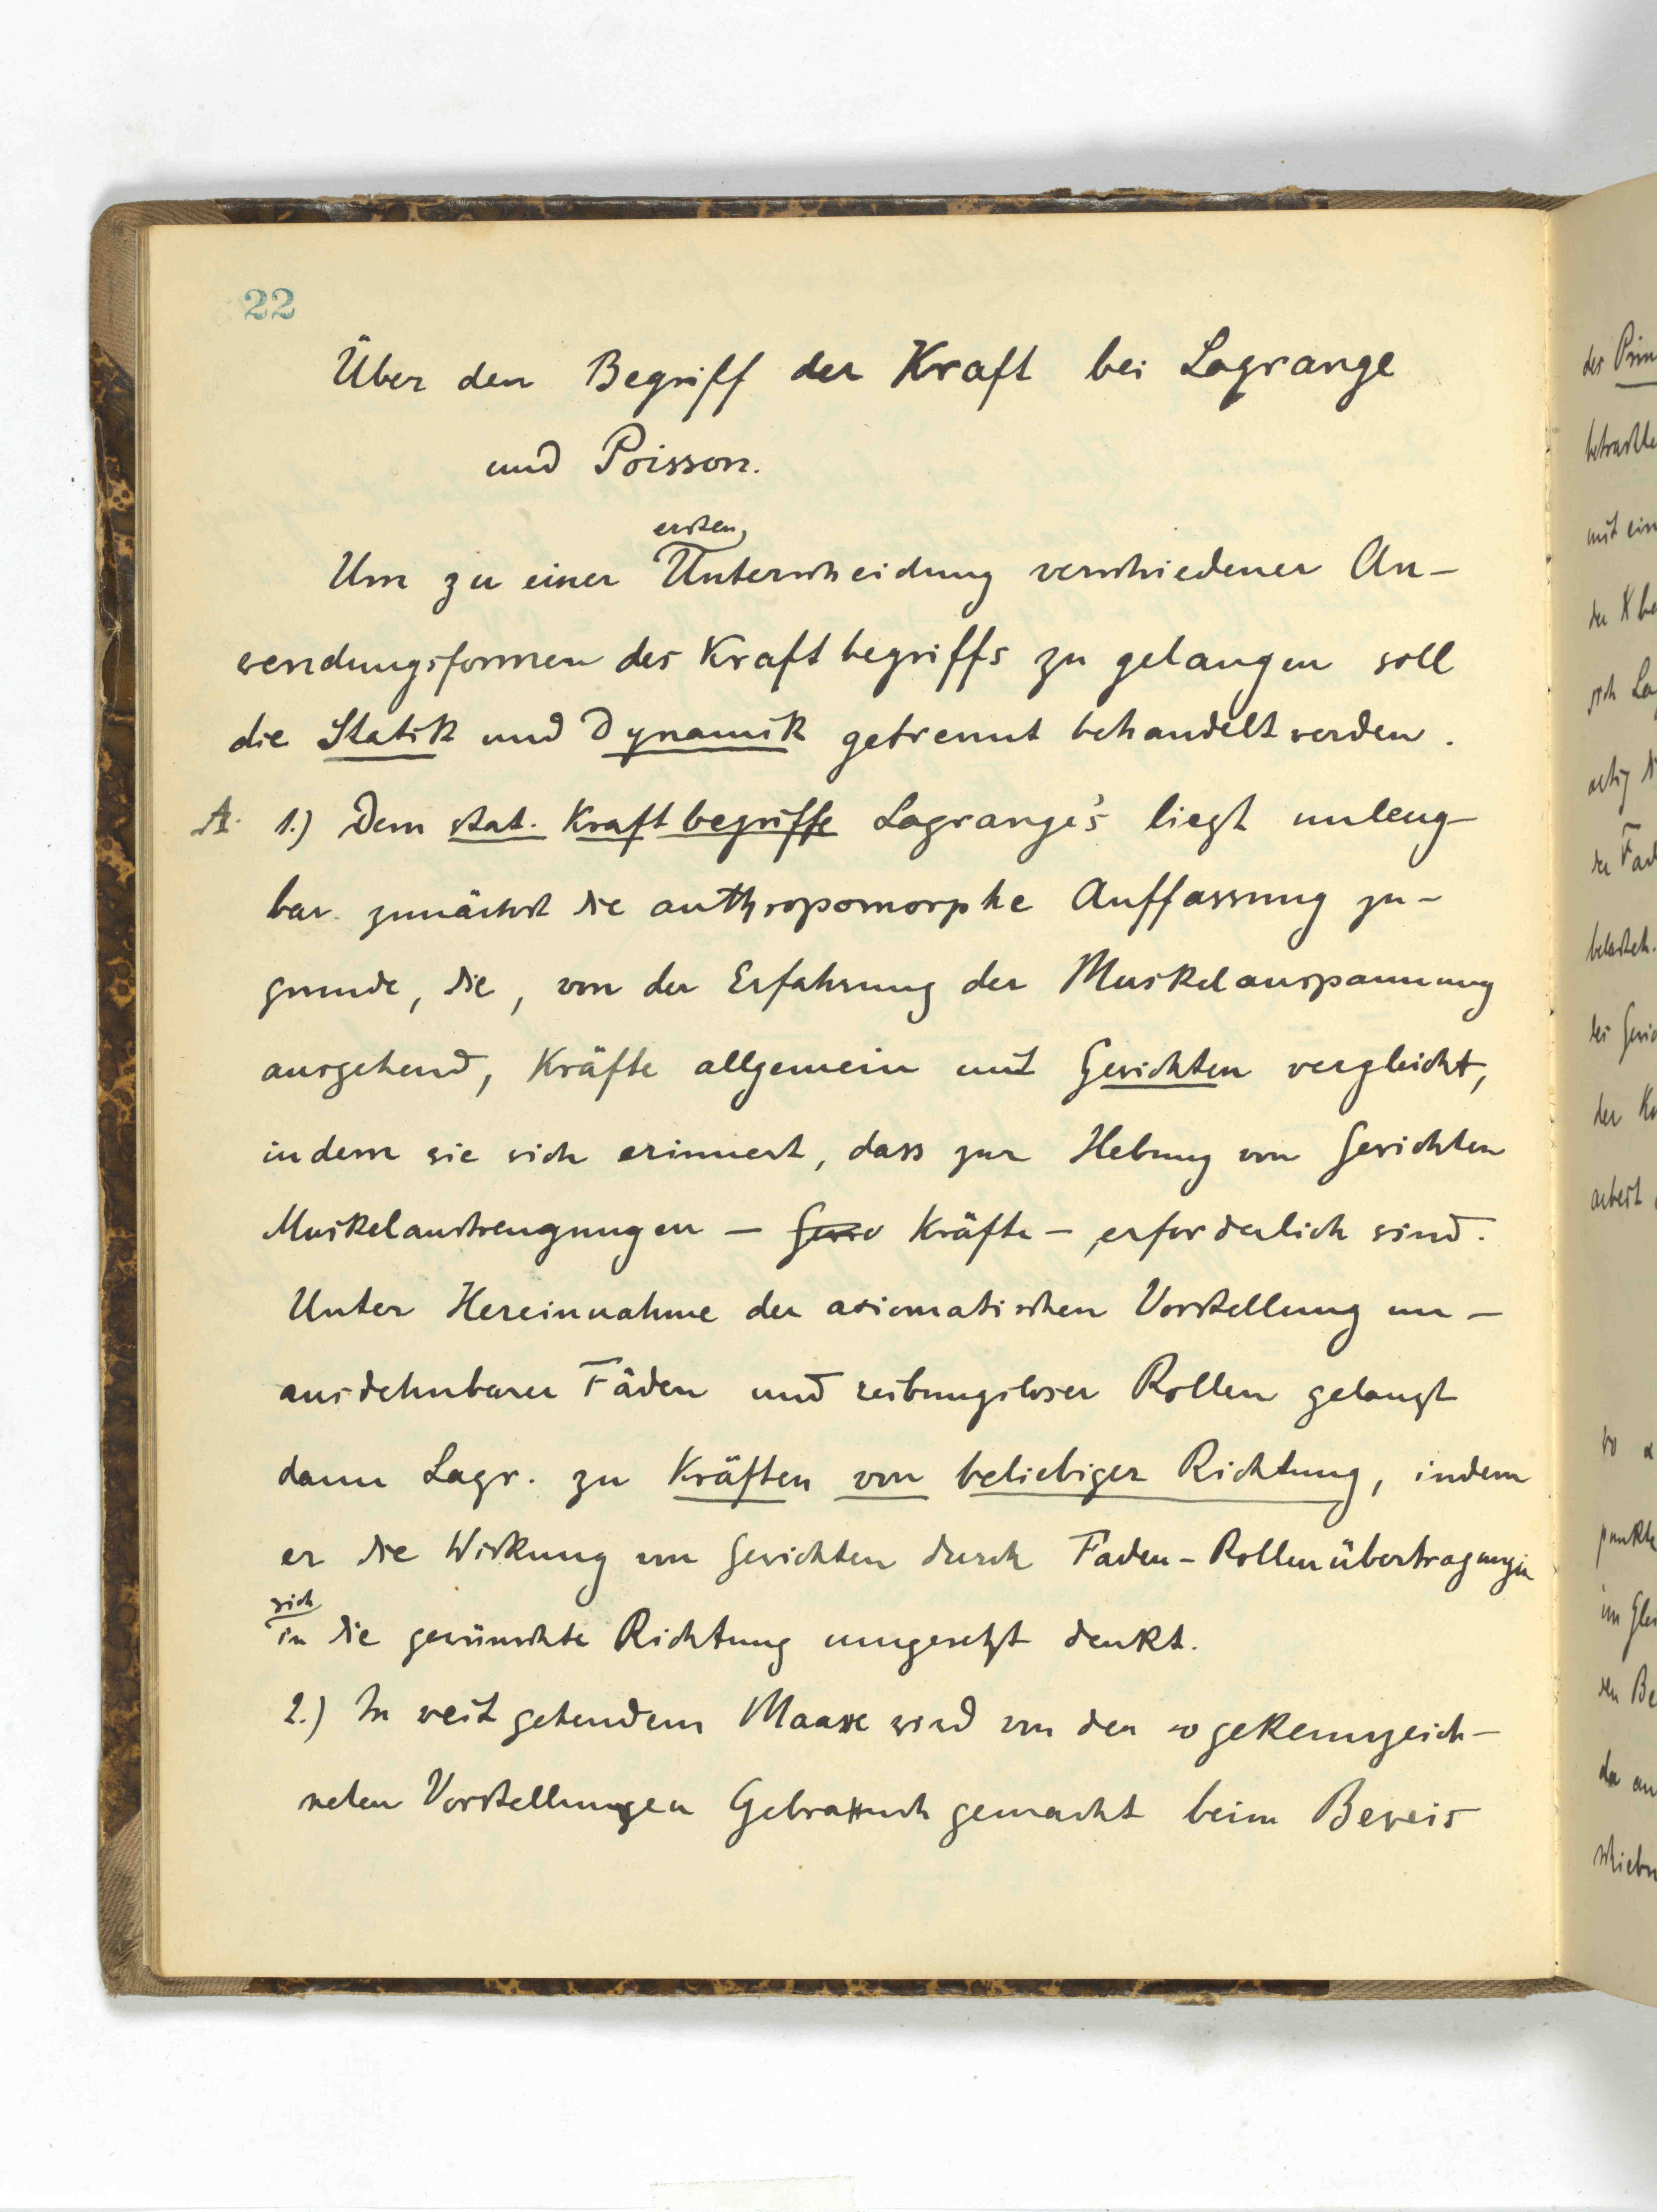 22
Über den Begriff der Kraft bei Lagrange
und Poisson.
ersten
Um zu einer Unterscheidung verschiedener An-
wendungsformen des Kraftbegriffs zu gelangen soll
die Statik und Dynamik getrennt behandelt werden.
A. 1.) Dem stat. Kraftbegriffe Lagrange's liegt unleug-
bar zunächst die anthropomorphe Auffassung zu-
grunde, die, von der Erfahrung der Muskelanspannung
ausgehend, Kräfte allgemein mit Gewichten vergleicht,
indem sie sich erinnert, dass zur Hebung von Gewichten
Muskelanstrengungen – Kräfte – erforderlich sind.
Unter Hereinnahme der axiomatischen Vorstellung un-
ausdehnbarer Fäden und reibungsloser Rollen gelangt
dann Lagr. zu Kräften von beliebiger Richtung, indem
er die Wirkung von Gewichten durch Faden-Rollenübertragungen
sich
in die gewünschte Richtung umgesetzt denkt.
2.) In weitgehendem Maasse wird von den so gekennzeich-
neten Vorstellungen Gebrauch gemacht beim Beweis